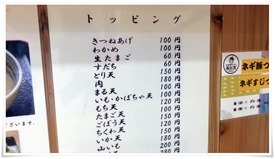 トッピング
きつねあげ 100円
わかめ 100円
生たまご 60円
すだち 60円
とり天 150円
肉 100円
まる天 100円
いも・かぼちゃ天 120円
もち天 100円
たまご天 120円
ごぼう天 180円
ちくわ天 150円
いか天 180円
山いも 200円
ネギ豚つ
ネギすじつ